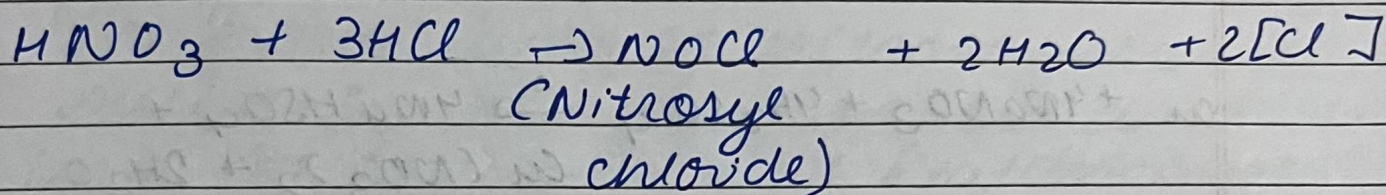 HNO3 + 3HCl → NOCl + 2H2O + 2[Cl]
(Nitrosyl
chloride)